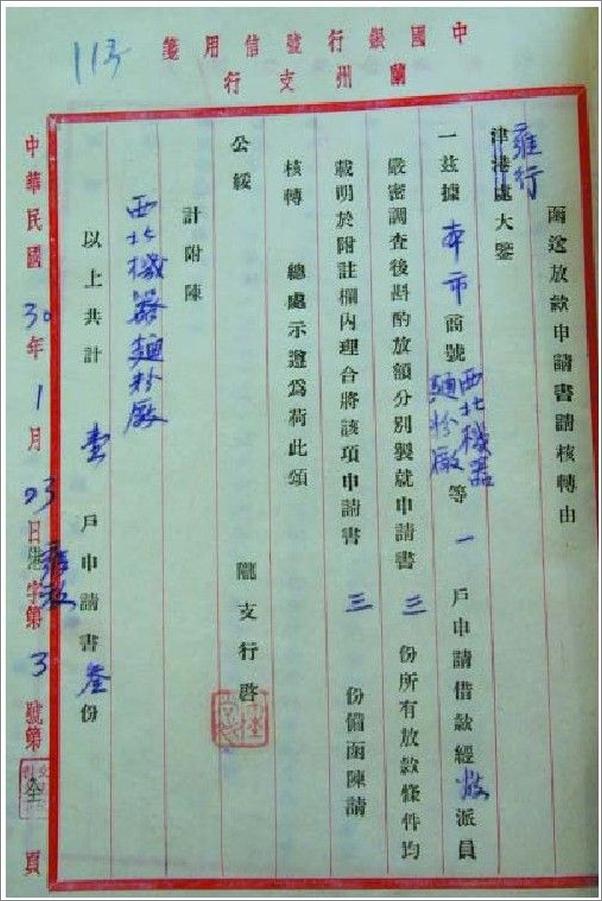 中國銀行號信用箋
蘭州支行
113
函送放款申請書請核轉由
雍行
津港處大鑒
一茲據本市商號西北機器麵粉廠等一戶申請借款經敝派員
嚴密調查後斟酌放額分別製就申請書三份所有放款條件均
載明於附註欄內理合將該項申請書三份備函陳請
核轉 總處示遵為荷此頌
公綏 隴支行啓
計附陳
西北機器麵粉廠
以上共計壹戶申請書叁份
中華民國30年1月23日港雍放字第3號第全頁